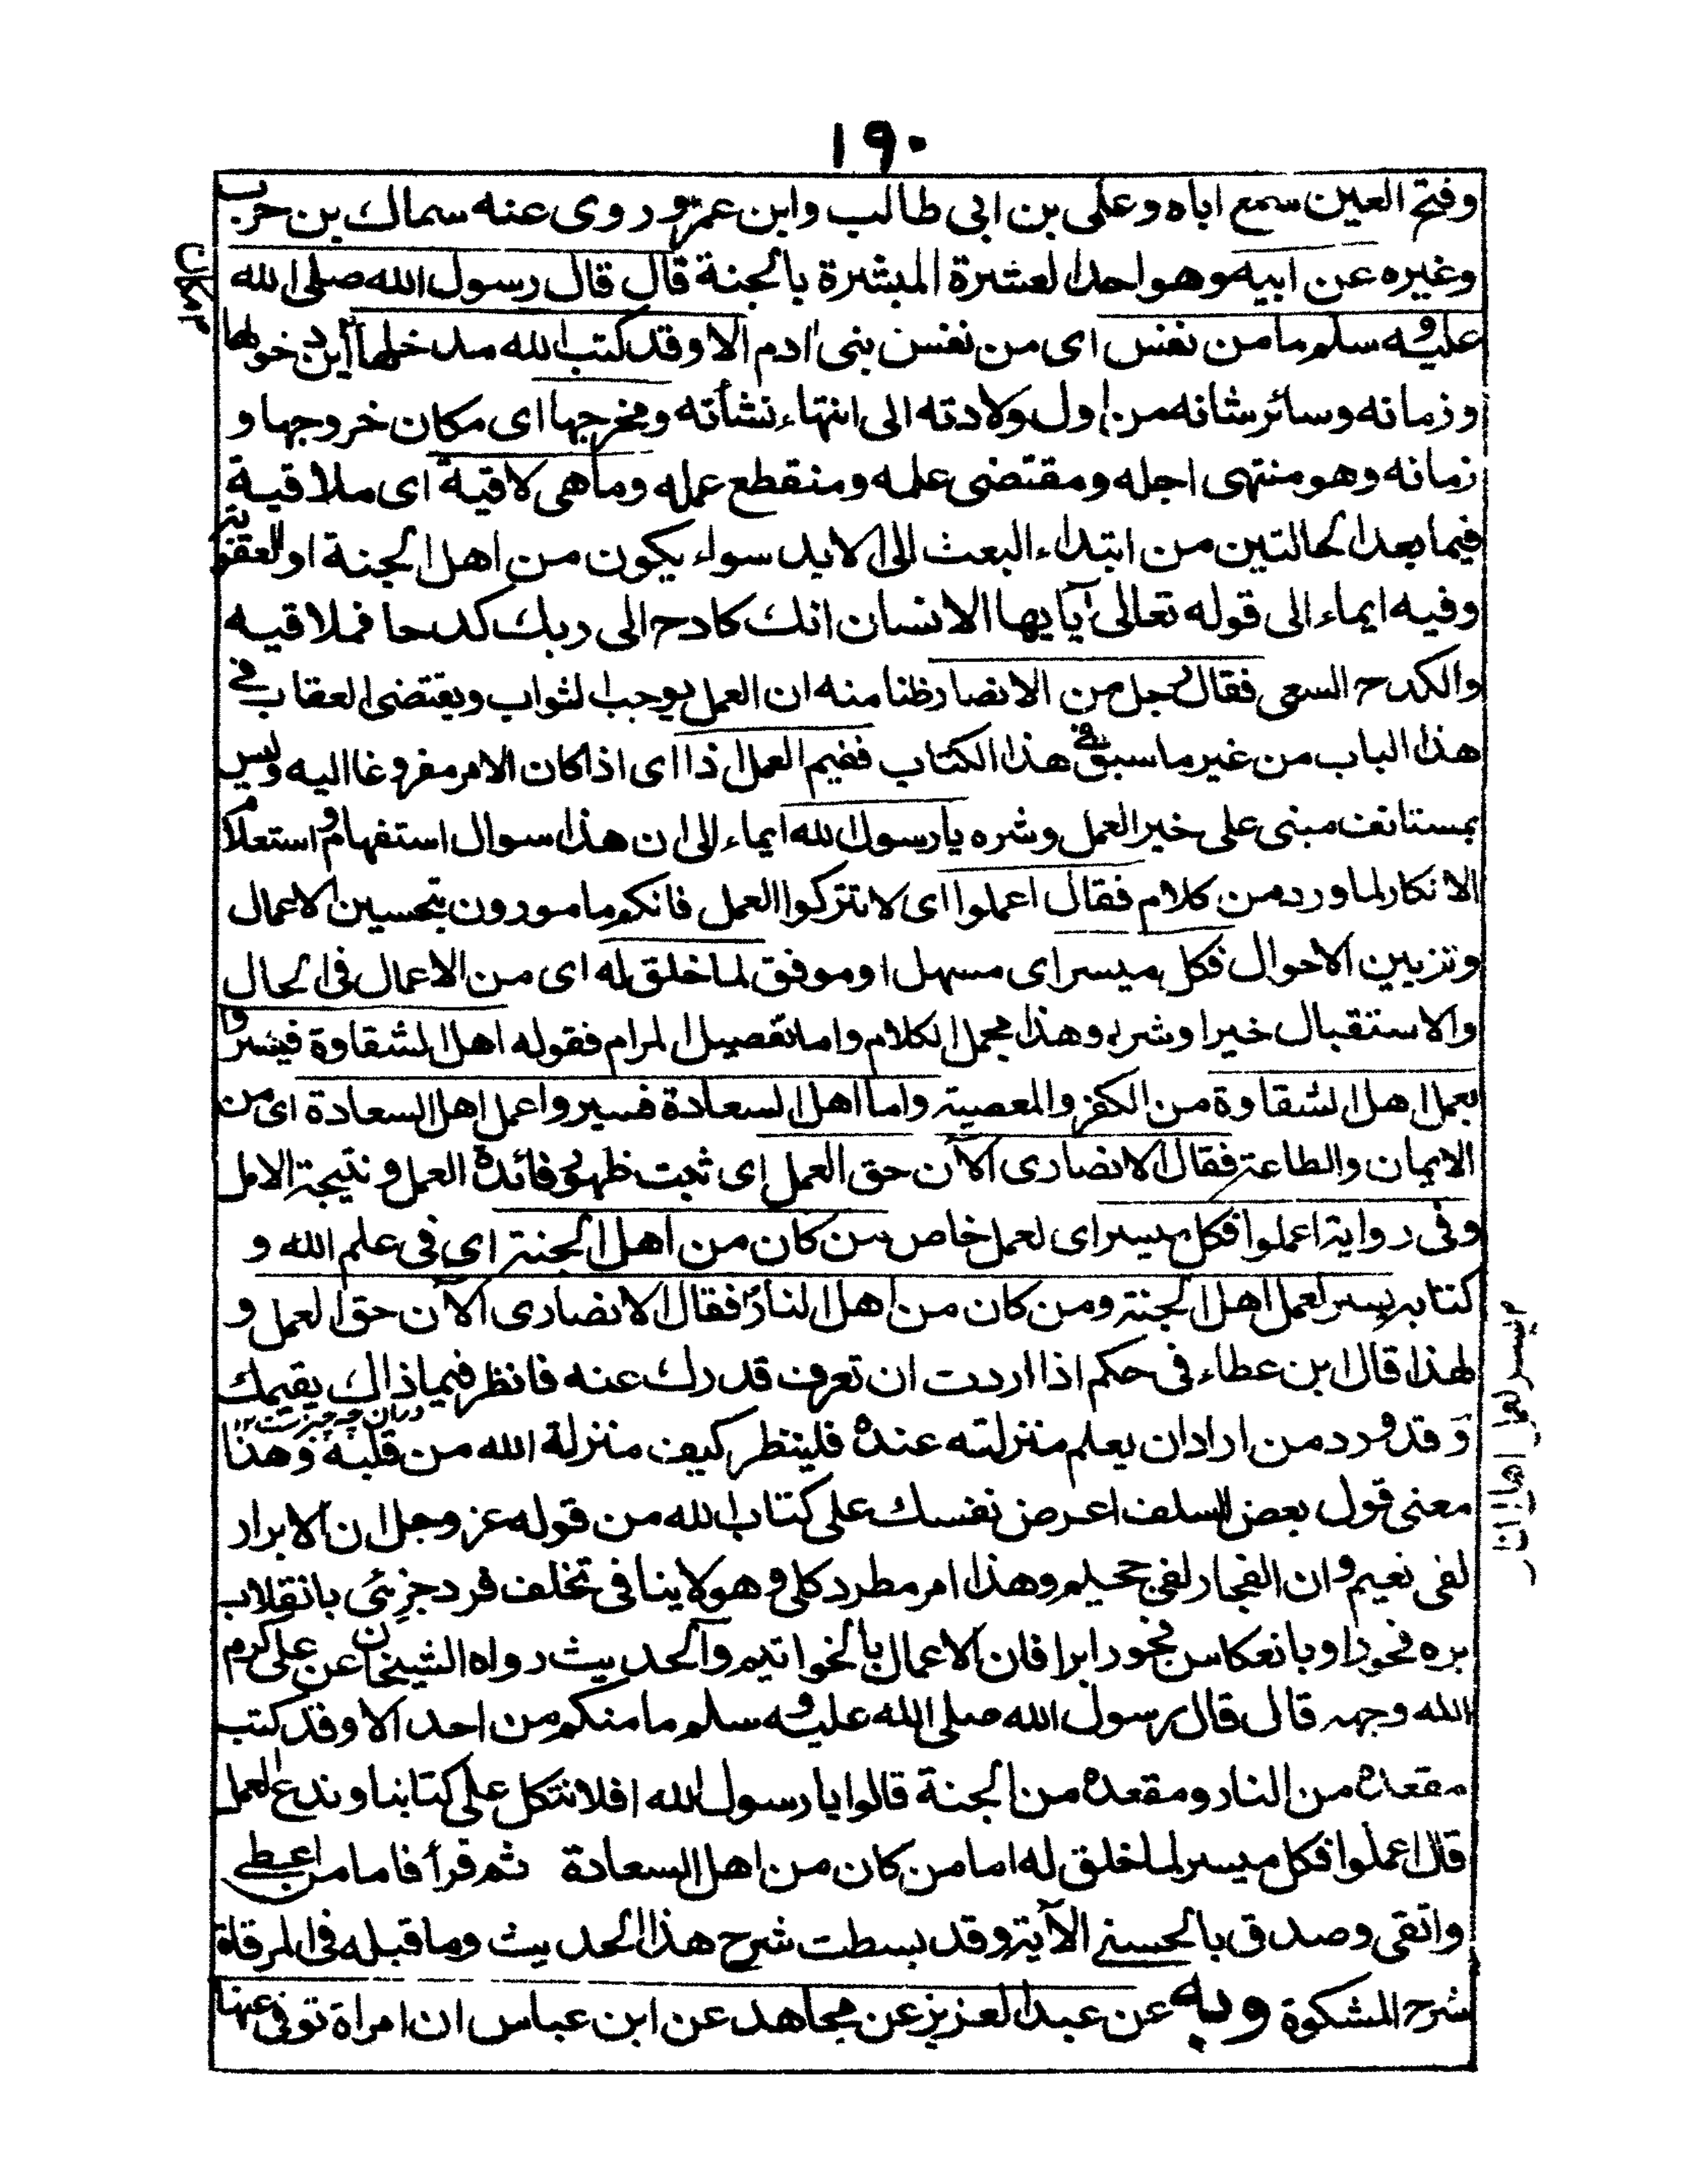 ١٩٠
وفتح العين سمع اباه وعلى بن ابى طالب وابن عمر وروى عنه سماك بن حرب
وغيره عن ابيه وهو احد العشرة المبشرة بالجنة قال قال رسول الله صلى الله
عليه وسلم ما من نفس اى من نفس بنى ادم الا وقد كتب الله مدخلها اى دخولها
وزمانه وسائر شانه من اول ولادته الى انتهاء نشأته ومخرجها اى مكان خروجها و
زمانه وهو منتهى اجله ومقتضى علمه ومنقطع عمله وما هى لاقية اى ملاقية
فيما بعد الحالتين من ابتداء البعث الى الابد سواء يكون من اهل الجنة او العقوبة
وفيه ايماء الى قوله تعالى آيايها الانسان انك كادح الى ربك كدحا فملاقيه
والكدح السعى فقال رجل من الانصار ظنا منه ان العمل يوجب الثواب ويقتضى العقاب فى
هذا الباب من غير ما سبق فى هذا الكتاب ففيم العمل اذا اى اذا كان الامر مفروغا اليه وليس
بمستانف مبنى على خير العمل وشره يا رسول الله ايماء الى ان هذا سوال استفهام واستعلام
الانكار لما ورد من كلام فقال اعملوا اى لا تتركوا العمل فانكم مامورون بتحسين الاعمال
وتزيين الاحوال فكل ميسر اى مسهل او موفق لما خلق له اى من الاعمال فى الحال
والاستقبال خيرا وشره وهذا مجمل الكلام واما تفصيل المرام فقوله اهل الشقاوة فيسروا
بعمل اهل الشقاوة من الكفر والمعصية واما اهل السعادة فسيروا عمل اهل السعادة اى من
الايمان والطاعة فقال الانصارى الآن حق العمل اى ثبت ظهور فائدة العمل ونتيجة الامل
وفى رواية اعملوا فكل ميسر اى لعمل خاص من كان من اهل الجنة اى فى علم الله و
كتابه يسر لعمل اهل الجنة ومن كان من اهل النار فقال الانصارى الآن حق العمل و
لهذا قال ابن عطاء فى حكم اذا اردت ان تعرف قدرك عنه فانظر فيما ذا لك يقيمك
وقد ورد من اراد ان يعلم منزلته عنده فلينظر كيف منزلة الله من قلبه وهذا
معنى قول بعض السلف اعرض نفسك على كتاب الله من قوله عز وجل ان الابرار
لفى نعيم وان الفجار لفى جحيم وهذا امر مطرد كلى وهو لا ينافى تخلف فرد جزئى بانقلاب
بره فجورا وبانعكاس فجور ابرا فان الاعمال بالخواتيم والحديث رواه الشيخان عن على كرم
الله وجهه قال قال رسول الله صلى الله عليه وسلم ما منكم من احد الا وقد كتب
مقعده من النار ومقعده من الجنة قالوا يا رسول الله افلا نتكل على كتابنا وندع العمل
قال اعملوا فكل ميسر لما خلق له اما من كان من اهل السعادة ثم قرأ فاما من اعطى
واتقى وصدق بالحسنى الآية وقد بسطت شرح هذا الحديث وما قبله فى المرقاة
شرح المشكوة وبه عن عبد العزيز عن مجاهد عن ابن عباس ان امراة توفى عنها
اى مكان
يسر لعمل اهل النار